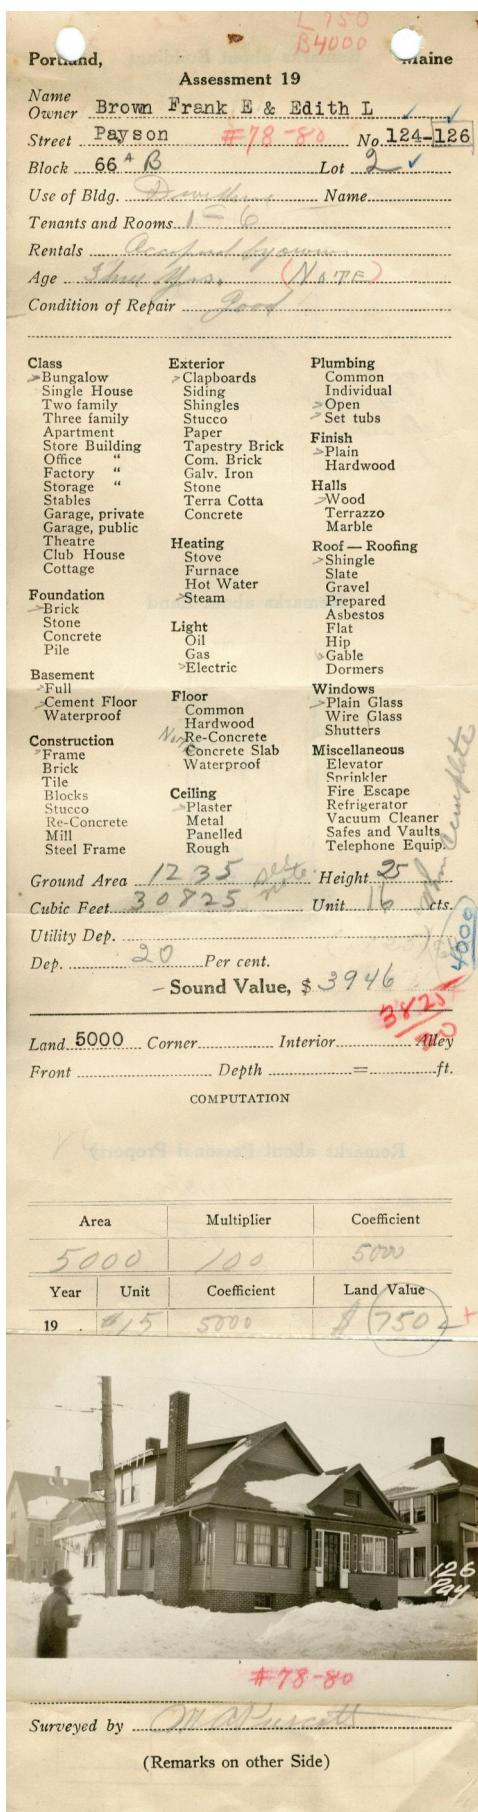 L 750
B 4000
Portland, Maine
Assessment 19
Name
Owner Brown Frank E & Edith L
Street Payson #78-80 No. 124-126
Block 66 A B Lot 2
Use of Bldg. Dwelling Name
Tenants and Rooms 1 - 6
Rentals Occupied by owner
Age Three Yrs. (NOTE)
Condition of Repair good
Class
Bungalow
Single House
Two family
Three family
Apartment
Store Building
Office "
Factory "
Storage "
Stables
Garage, private
Garage, public
Theatre
Club House
Cottage
Foundation
Brick
Stone
Concrete
Pile
Basement
Full
Cement Floor
Waterproof
Construction
Frame
Brick
Tile
Blocks
Stucco
Re-Concrete
Mill
Steel Frame
Exterior
Clapboards
Siding
Shingles
Stucco
Paper
Tapestry Brick
Com. Brick
Galv. Iron
Stone
Terra Cotta
Concrete
Heating
Stove
Furnace
Hot Water
Steam
Light
Oil
Gas
Electric
Floor
Common
Hardwood
Re-Concrete
Concrete Slab
Waterproof
Ceiling
Plaster
Metal
Panelled
Rough
Plumbing
Common
Individual
Open
Set tubs
Finish
Plain
Hardwood
Halls
Wood
Terrazzo
Marble
Roof — Roofing
Shingle
Slate
Gravel
Prepared
Asbestos
Flat
Hip
Gable
Dormers
Windows
Plain Glass
Wire Glass
Shutters
Miscellaneous
Elevator
Sprinkler
Fire Escape
Refrigerator
Vacuum Cleaner
Safes and Vaults
Telephone Equip.
Ground Area 1235 Height 25
Cubic Feet 30825 Unit 16 cts.
Utility Dep.
4000
Dep. 20 Per cent.
Sound Value, $ 3946
3825
Land 5000 Corner Interior Alley
Front Depth = ft.
COMPUTATION
Area Multiplier Coefficient
5000 100 5000
Year Unit Coefficient Land Value
19 $15 5000 $ 750
126
Pay
#78-80
Surveyed by
(Remarks on other Side)